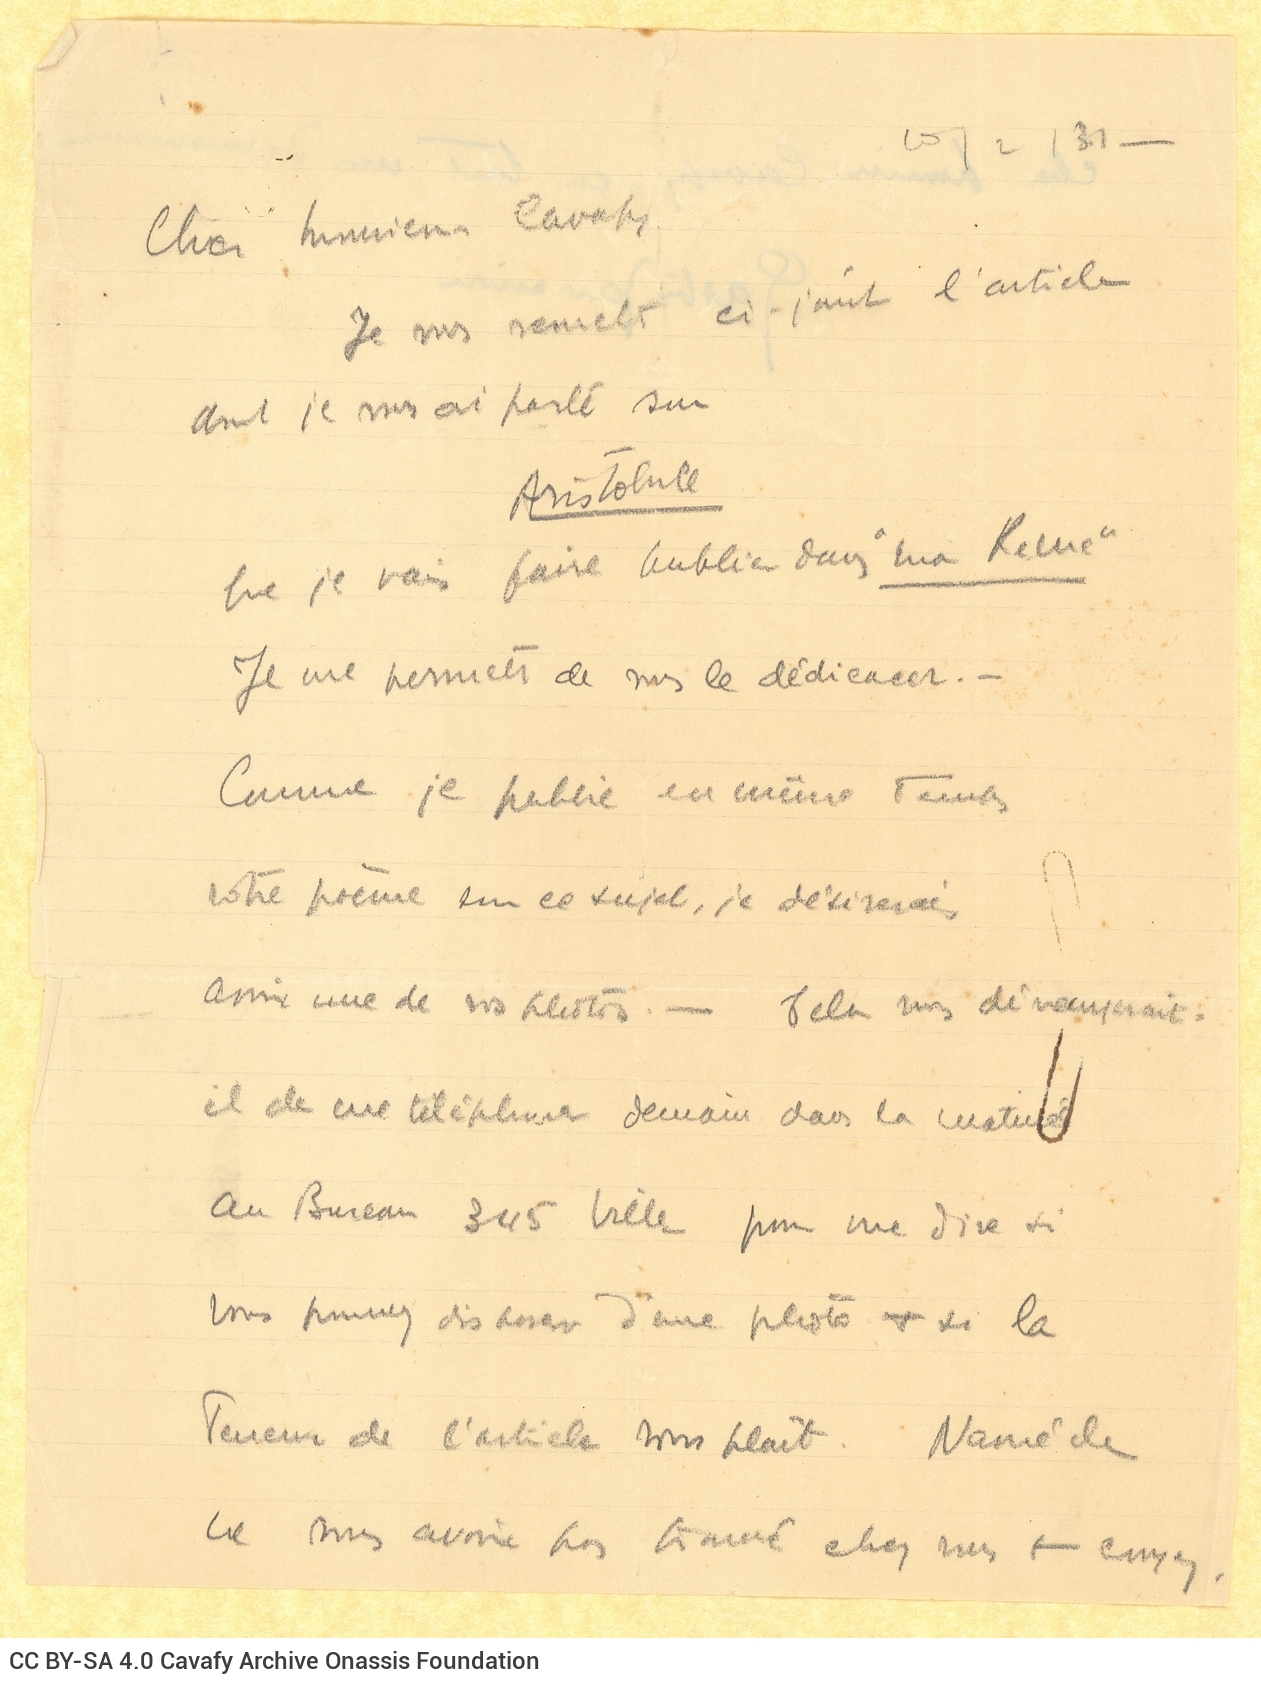 10/2/31 —
Cher monsieur Cavafy.
Je vous remets ci-joint l'article
dont je vous ai parlé sur
Aristobule
que je vais faire publier dans "ma Revue"
Je me permets de vous le dédicacer. —
Comme je publie en même temps
votre poème sur ce sujet, je désirerais
avoir une de vos photos. — Cela vous dérangerait-
il de me téléphoner demain dans la matinée
au Bureau 345 Ville pour me dire si
vous pouvez disposer d'une photo + si la
Teneur de l'article vous plaît. Navré de
ne vous avoir pas trouvé chez vous + croyez,
CC BY-SA 4.0 Cavafy Archive Onassis Foundation